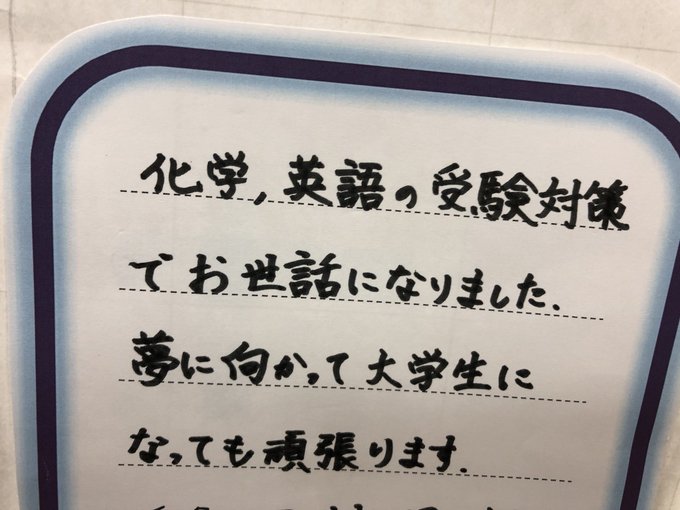 化学,英語の受験対策
でお世話になりました.
夢に向かって大学生に
なっても頑張ります.